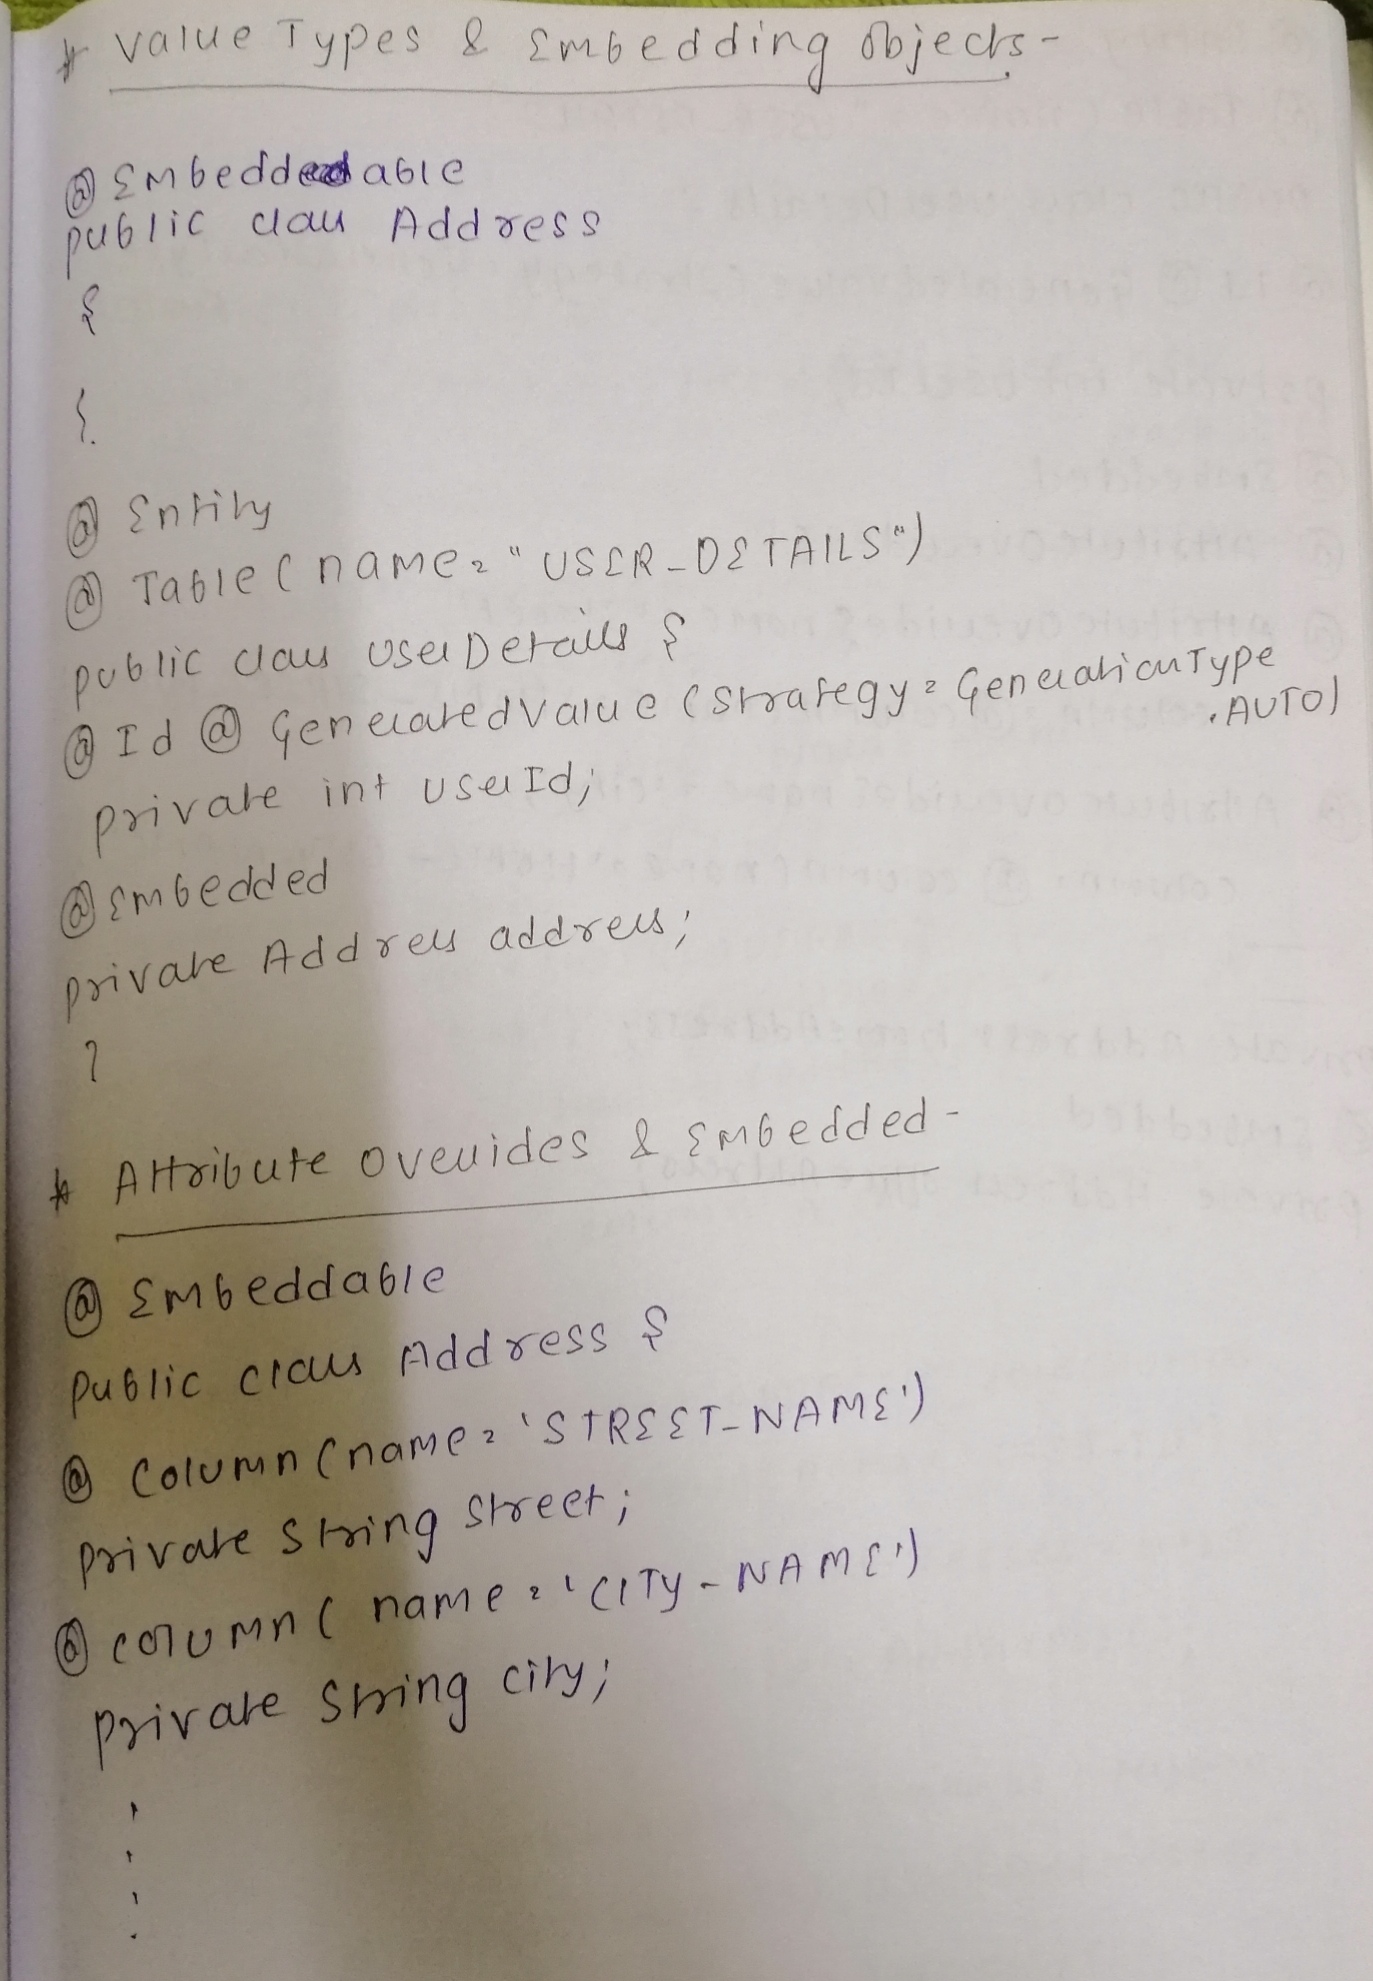 * Value Types & Embedding Objects -
@ Embeddable
public class Address
{
}.
@ Entity
@ Table ( name = "USER_DETAILS")
public class UserDetails {
@ Id @ GeneratedValue (strategy = GenerationType
.AUTO)
private int userId;
@ Embedded
private Address address;
}
* Attribute Overrides & Embedded -
@ Embeddable
public class Address {
@ Column (name = 'STREET_NAME')
private String street;
@ column ( name = 'CITY-NAME')
private String city;